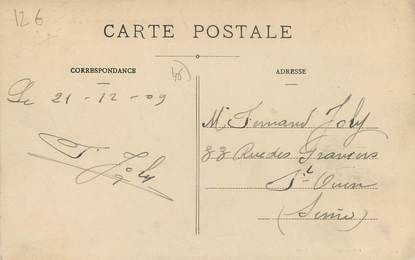 12€
CARTE POSTALE
CORRESPONDANCE
ADRESSE
Le 21-12-09
Joly
Mr Fernand Joly
Rue des Graviers
St Ouen
(Seine)